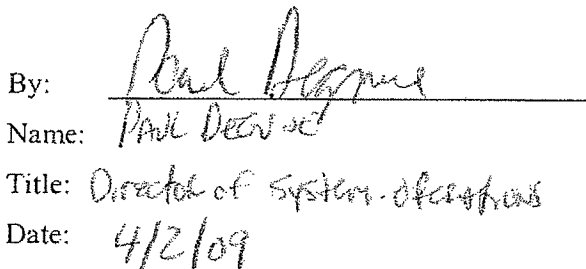 By: Paul
Name: PAUL
Title: Director of System Operations
Date: 4/2/09